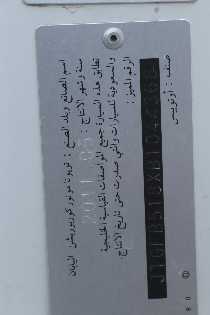 اسم الصانع وبلد الصنع : تويوتا موتور كوربوريشن اليابان
سنة وشهر الانتاج : 2011 05
تطابق هذه السيارة جميع المواصفات القياسية الخليجية
والسعودية للسيارات والتي صدرت حتى تاريخ الانتاج.
الرقم المميز :
صنف : أوتوبيس